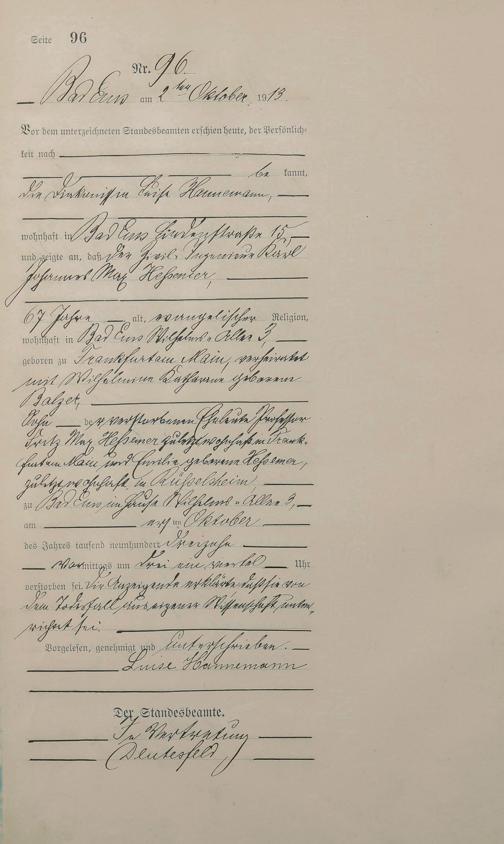 Seite 96
Nr. 96.
Bad Ems am 2ten Oktober 1913.
Vor dem unterzeichneten Standesbeamten erschien heute, der Persönlich-
keit nach
be kannt,
die Diakonissin Luise Hannemann,
wohnhaft in Bad Ems 15,
und zeigte an, daß der Zivil-Ingenieur Karl
Johannes Max Hessemer,
67 Jahre alt, evangelischer Religion,
wohnhaft in Bad Ems Wilhelms-Allee 3,
geboren zu Frankfurt am Main, verheiratet
mit Wilhelmine Katharine geborenen
Balzer,
Sohn der verstorbenen Eheleute Professor
Fritz Max Hessemer zuletzt wohnhaft in Frank-
furt am Main und Emilie geborene Hessemer,
zuletzt wohnhaft in Rüsselsheim,
zu Bad Ems, im Hause Wilhelms-Allee 3,
am ersten Oktober
des Jahres tausend neunhundert dreizehn
Vormittags um drei ein viertel Uhr
verstorben sei. Die Anzeigende erklärte daß sie von
dem Todesfall aus eigener Wissenschaft unter-
richtet sei.
Vorgelesen, genehmigt und unterschrieben.
Luise Hannemann
Der Standesbeamte.
In Vertretung